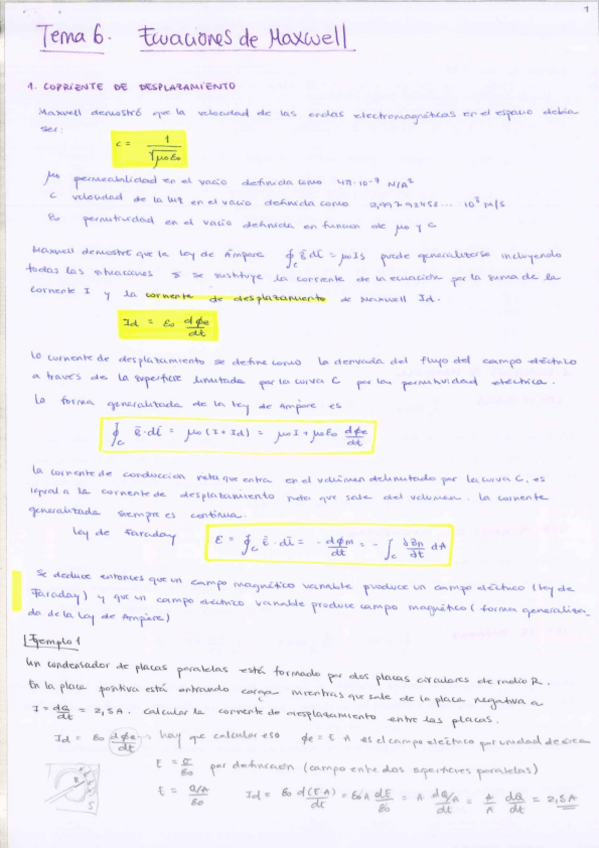 1
Tema 6. Ecuaciones de Maxwell
1. CORRIENTE DE DESPLAZAMIENTO
Maxwell demostró que la velocidad de las ondas electromagnéticas en el espacio debía
ser:
c = 1/√μ0 ε0
μ0 permeabilidad en el vacío definida como 4π·10⁻⁷ N/A²
c velocidad de la luz en el vacío definida como 2,99792458... 10⁸ m/s
ε0 permitividad en el vacío definida en función de μ0 y c
Maxwell demostró que la ley de Ampere ∮c B̄·dl̄ = μ0 Is puede generalizarse incluyendo
todas las situaciones si se sustituye la corriente de la ecuación por la suma de la
corriente I y la corriente de desplazamiento de Maxwell Id.
Id = ε0 dϕe/dt
La corriente de desplazamiento se define como la derivada del flujo del campo eléctrico
a través de la superficie limitada por la curva C por la permitividad eléctrica.
La forma generalizada de la ley de Ampère es
∮c B̄·dl̄ = μ0 (I + Id) = μ0 I + μ0 ε0 dϕe/dt
La corriente de conducción neta que entra en el volumen delimitado por la curva C, es
igual a la corriente de desplazamiento neta que sale del volumen. La corriente
generalizada siempre es continua.
Ley de Faraday ε = ∮c Ē·dl̄ = - dϕm/dt = - ∫c ∂Bn/∂t dA
Se deduce entonces que un campo magnético variable produce un campo eléctrico (ley de
Faraday) y que un campo eléctrico variable produce campo magnético (forma generaliza-
da de la ley de Ampère)
Ejemplo 1
Un condensador de placas paralelas está formado por dos placas circulares de radio R.
En la placa positiva está entrando carga mientras que sale de la placa negativa a
I = dQ/dt = 2,5 A. Calcular la corriente de desplazamiento entre las placas.
Id = ε0 dϕe/dt → hay que calcular eso ϕe = E A es el campo eléctrico por unidad de área
E = σ/ε0 por definición (campo entre dos superficies paralelas)
E = Q/A/ε0 Id = ε0 d(EA)/dt = ε0 A dE/dt = A dQ/A/dt = A/A dQ/dt = 2,5 A